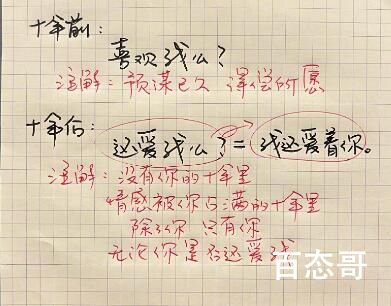 十年前:
喜欢我么?
注解: 预谋已久 得偿所愿
十年后:
还爱我么? = 我还爱着你。
注解: 没有你的十年里
情感被你占满的十年里
除了你 只有你
无论你是否还爱我
百态哥